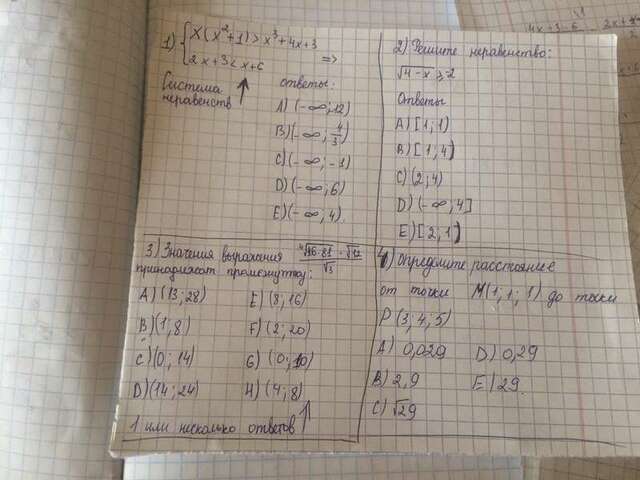 1) { x(x²+1)>x³+4x+3
2x+3<x+5 =>
Система ↑
неравенств
ответы:
A) (-∞;12)
B) (-∞; 4/3)
C) (-∞; -1)
D) (-∞; 6)
E) (-∞, 4).
2) Решите неравенство:
√4-x ≥ 2
Ответы
A) [1; 1)
B) [1; 4)
C) (2; 4)
D) (-∞, 4]
E) [2; 1)
3) Значения выражения
принадлежат промежутку:
A) (13; 28)
B) (1; 8)
C) (0; 14)
D) (14; 24)
E) (8; 16)
F) (2; 20)
G)
H) (4; 8)
1 или несколько ответов
4) Определите расстояние
от точки M(1; 1; 1) до точки
P(3, 4; 5)
A) 0,029
B) 2,9
C) √29
D) 0,29
E) 29.